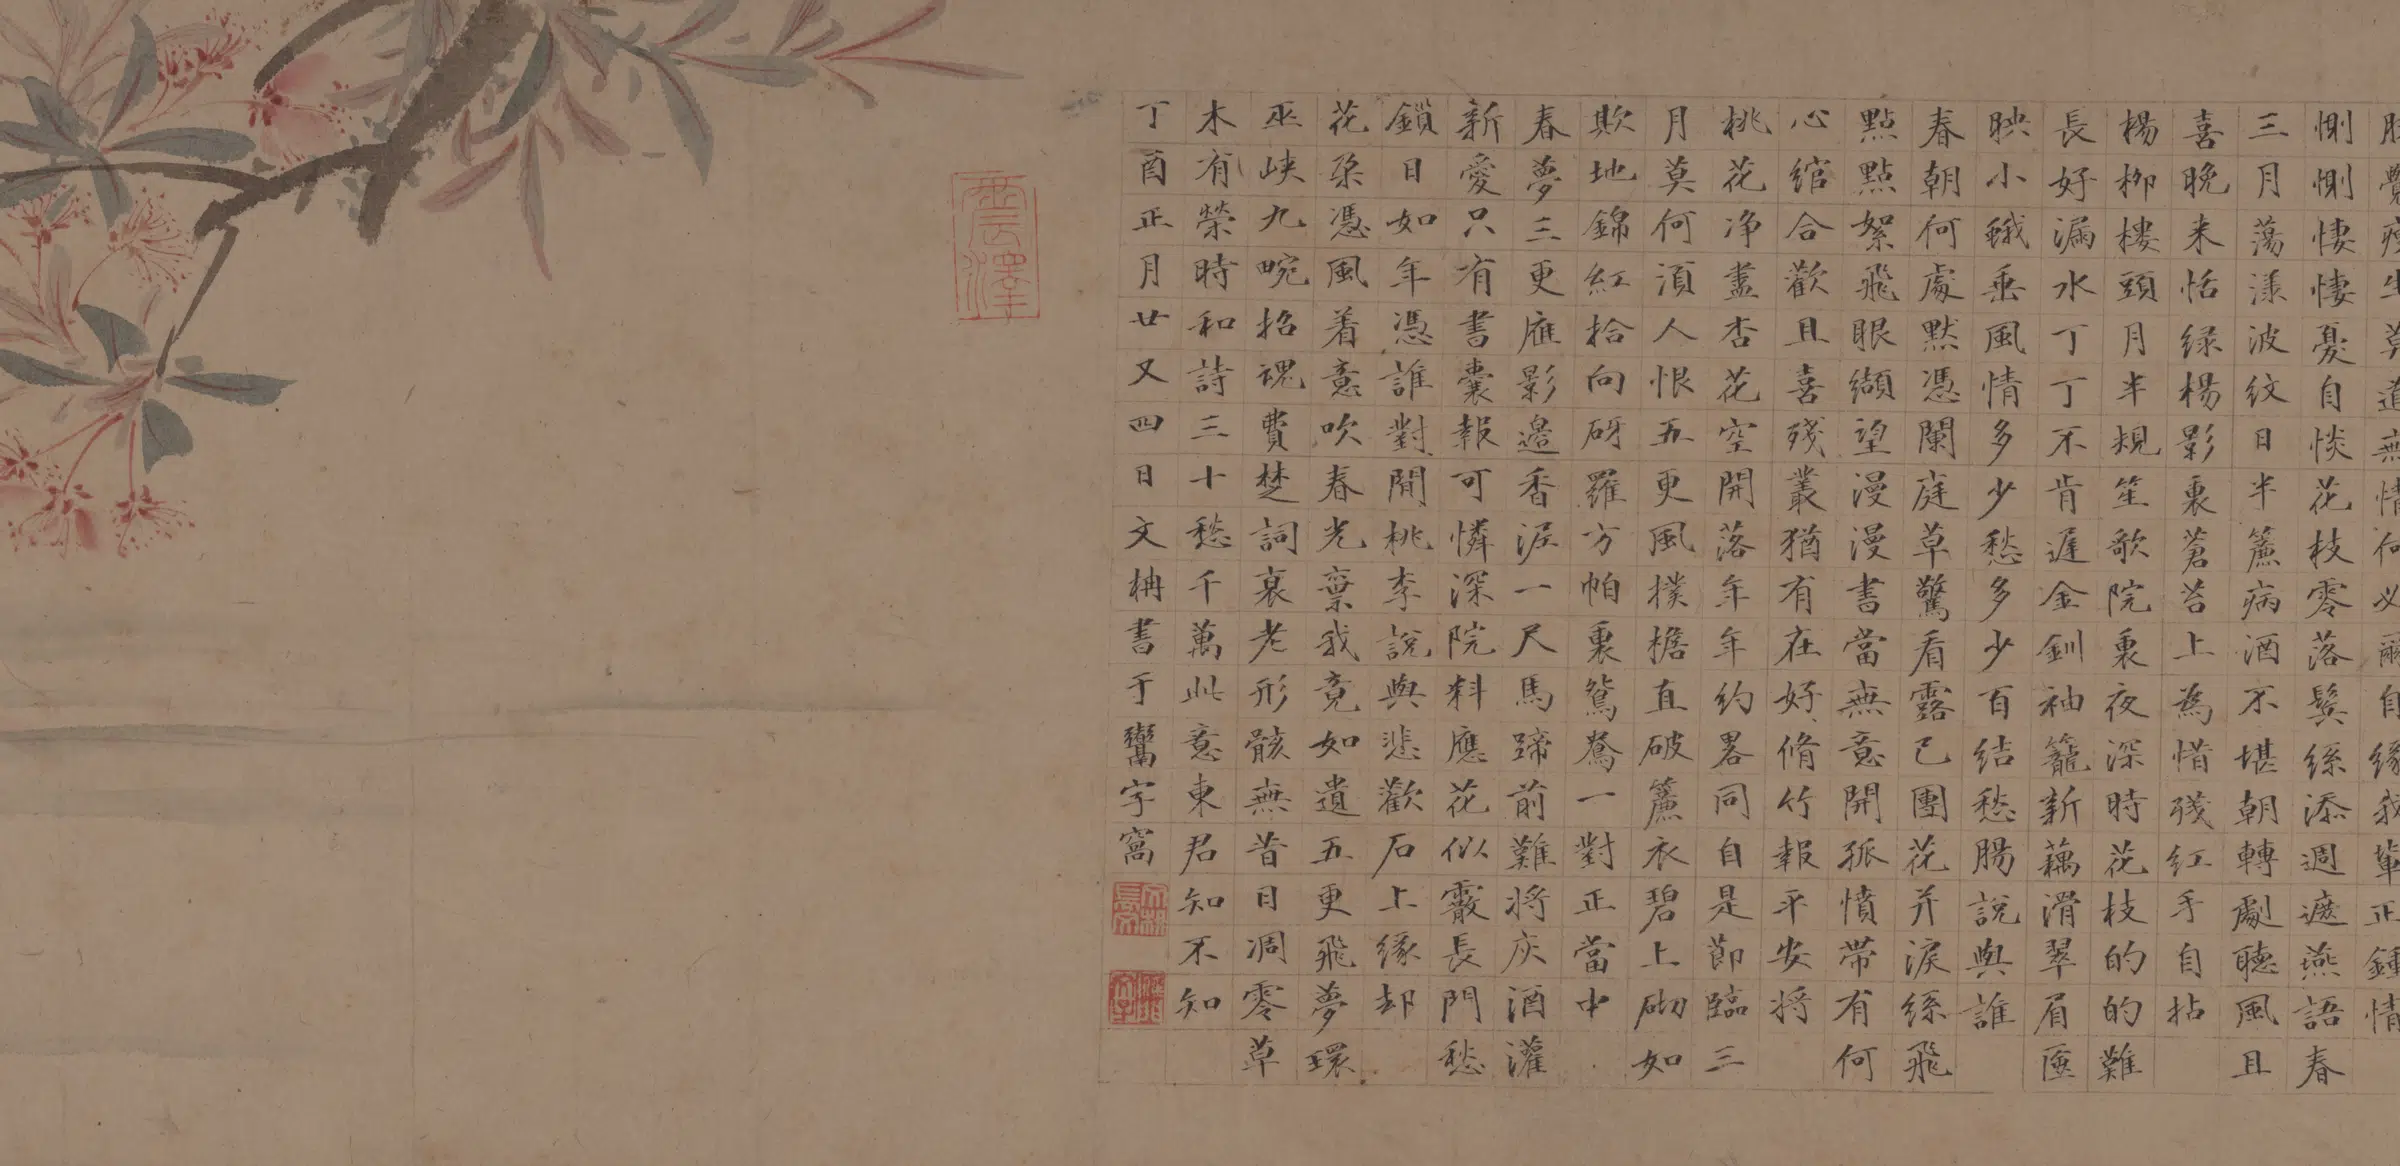 覺 生莫道無情何必爾自緣我輩正鍾情
惻惻悽悽憂自惔花枝零落鬂絲添週遮燕語春
三月蕩漾波紋日半簾病酒不堪朝轉劇聽風且
喜晚来恬綠楊影裏蒼苔上為惜殘紅手自拈
楊柳樓頭月半規笙歌院裏夜深時花枝的的難
長好漏水丁丁不肯遲金釧袖籠新藕滑翠眉
映小蛾垂風情多少愁多少百結愁腸說與誰
春朝何處默憑闌庭草驚看露已團花并淚絲飛
點點絮飛眼纈望漫漫書當無意開孤憤帶有何
心綰合歡且喜殘叢猶有在好脩竹報平安將
桃花净盡杏花空開落年年約畧同自是節臨三
月莫何須人恨五更風撲檐直破簾衣碧上砌如
欺地錦紅拾向砑羅方帕裏鴛鴦一對正當中
春夢三更雁影邊香泥一尺馬蹄前難將灰酒灌
新愛只有香囊報可憐深院料應花似霰長門愁
鎖日如年憑誰對閒桃李說與悲歡石上緣却
花朶憑風着意吹春光棄我竟如遺五更飛夢環
巫峽九畹招魂費楚詞衰老形骸無昔日凋零草
木有榮時和詩三十愁千萬此意東君知不知
丁酉正月廿又四日文枬書于鬻字窩